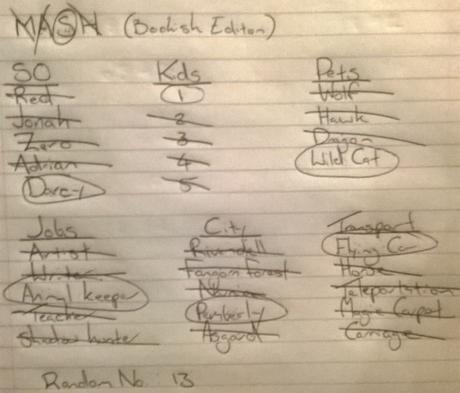 MASH (Bookish Editon)
SO Kids Pets
Red 1 Wolf
Jonah 2 Hawk
Zero 3 Dragon
Adrian 4 Wild Cat
Darcy 5
Jobs City Transport
Artist Rivendell Flying Car
Writer Fangorn forest Horse
Animl keeper Narnia Teleportation
Teacher Pemberly Magic Carpet
Shadow hunter Asgard Carriage
Random No. 13